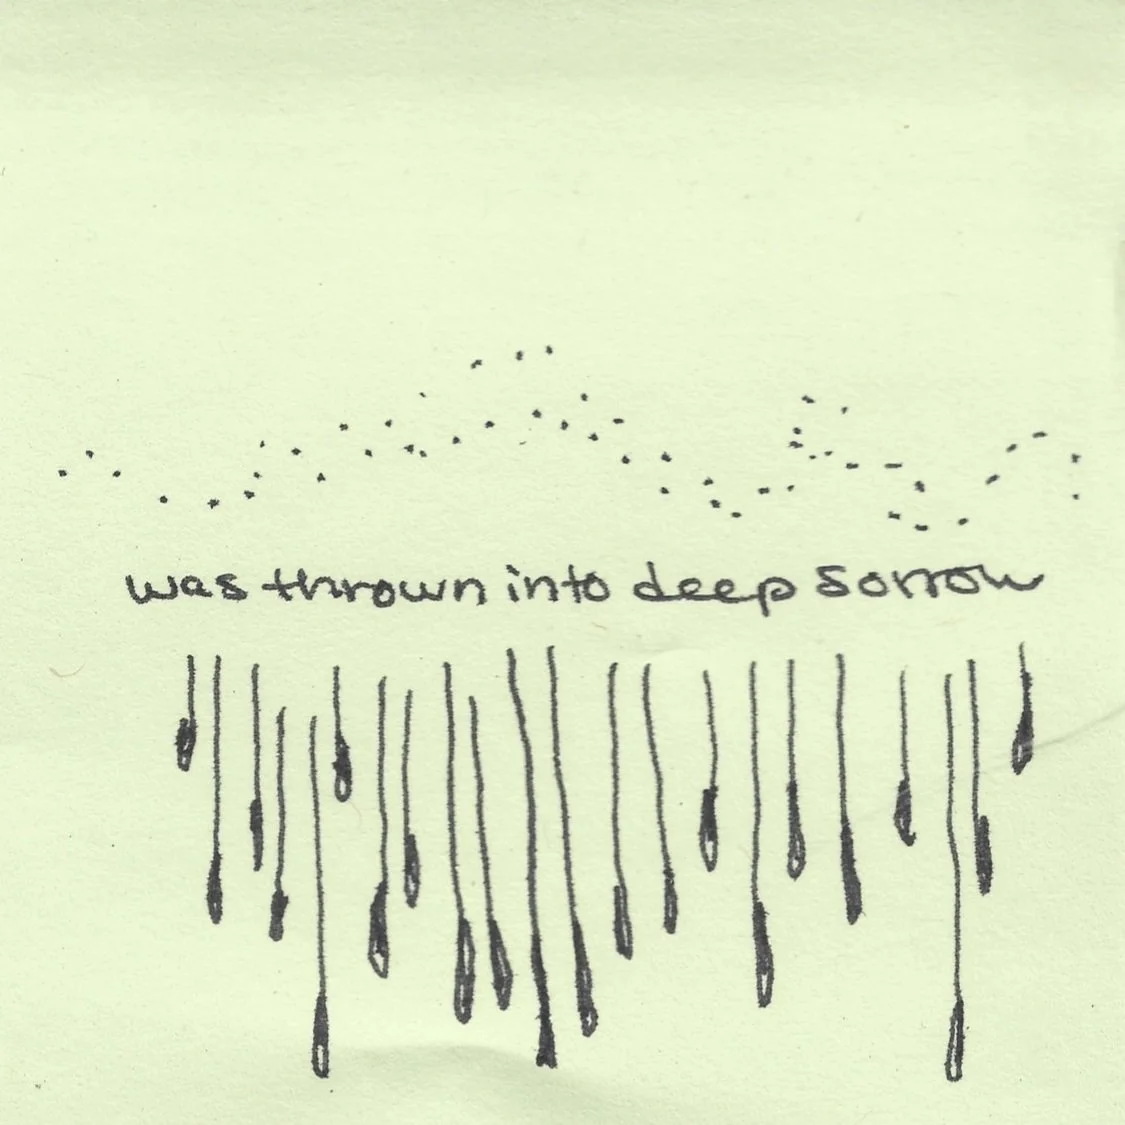 was thrown into deep sorrow